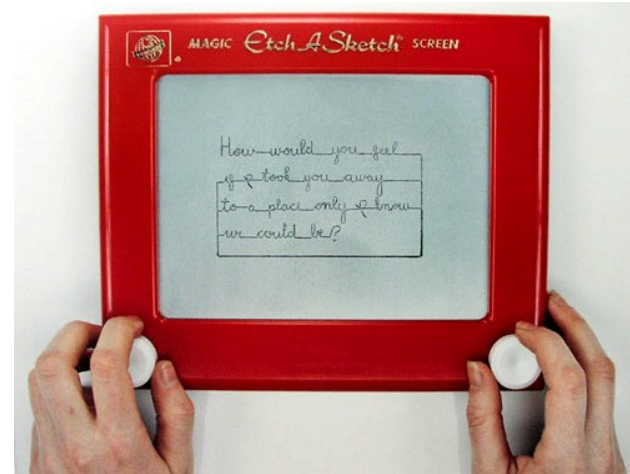 MAGIC Etch A Sketch® SCREEN
How would you feel
if I took you away
to a place only I know
we could be?